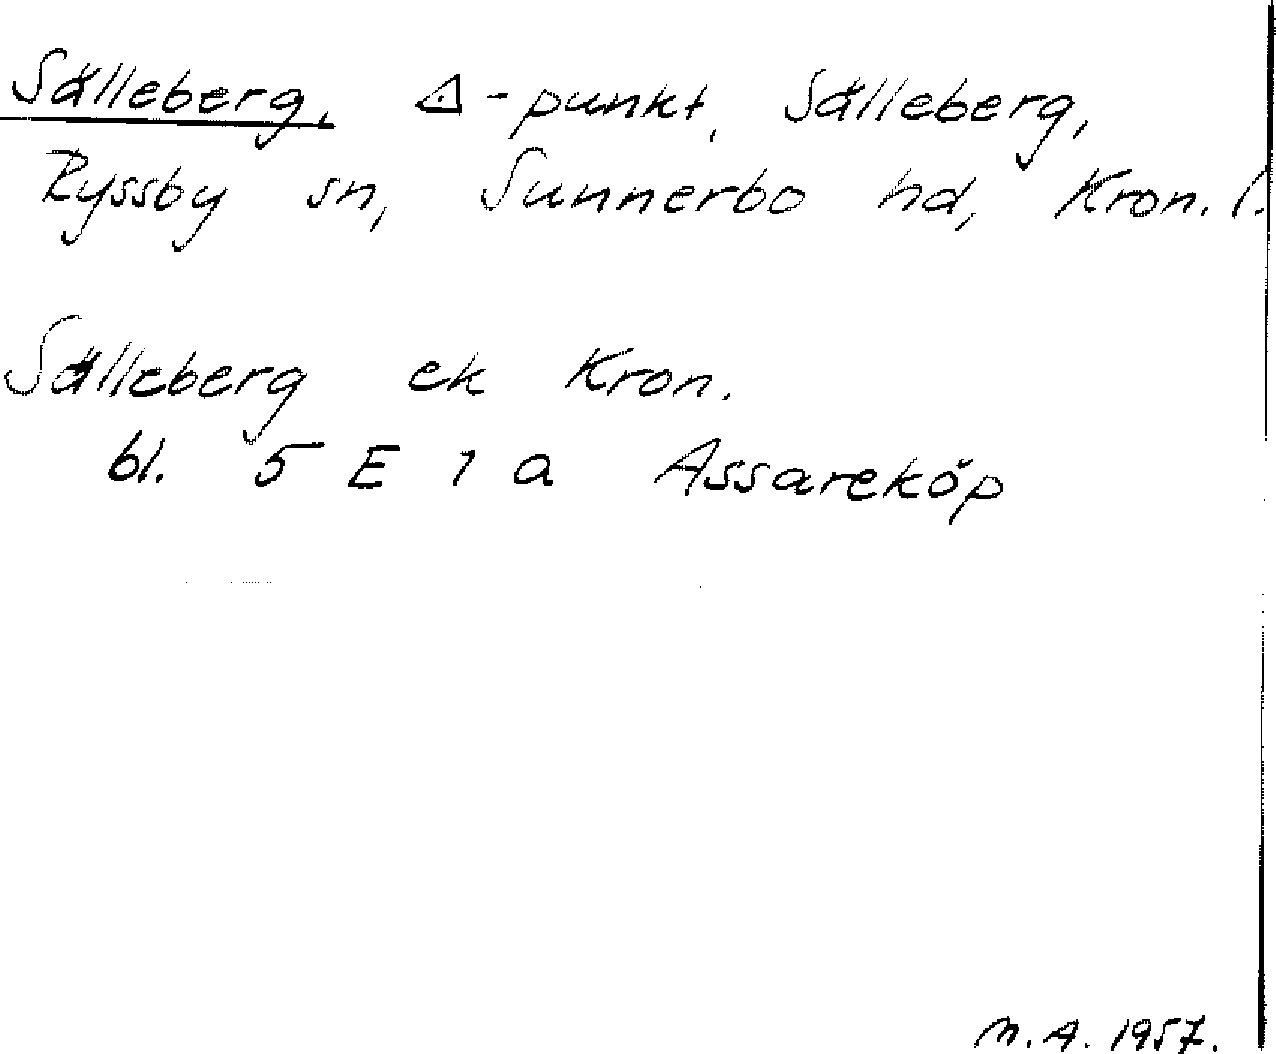 Sälleberg, △-punkt, Sälleberg,
Ryssby sn, Sunnerbo hd, Kron. l.
Sälleberg ek Kron.
bl. 5 E 1 a Assareköp
M. A. 1957.